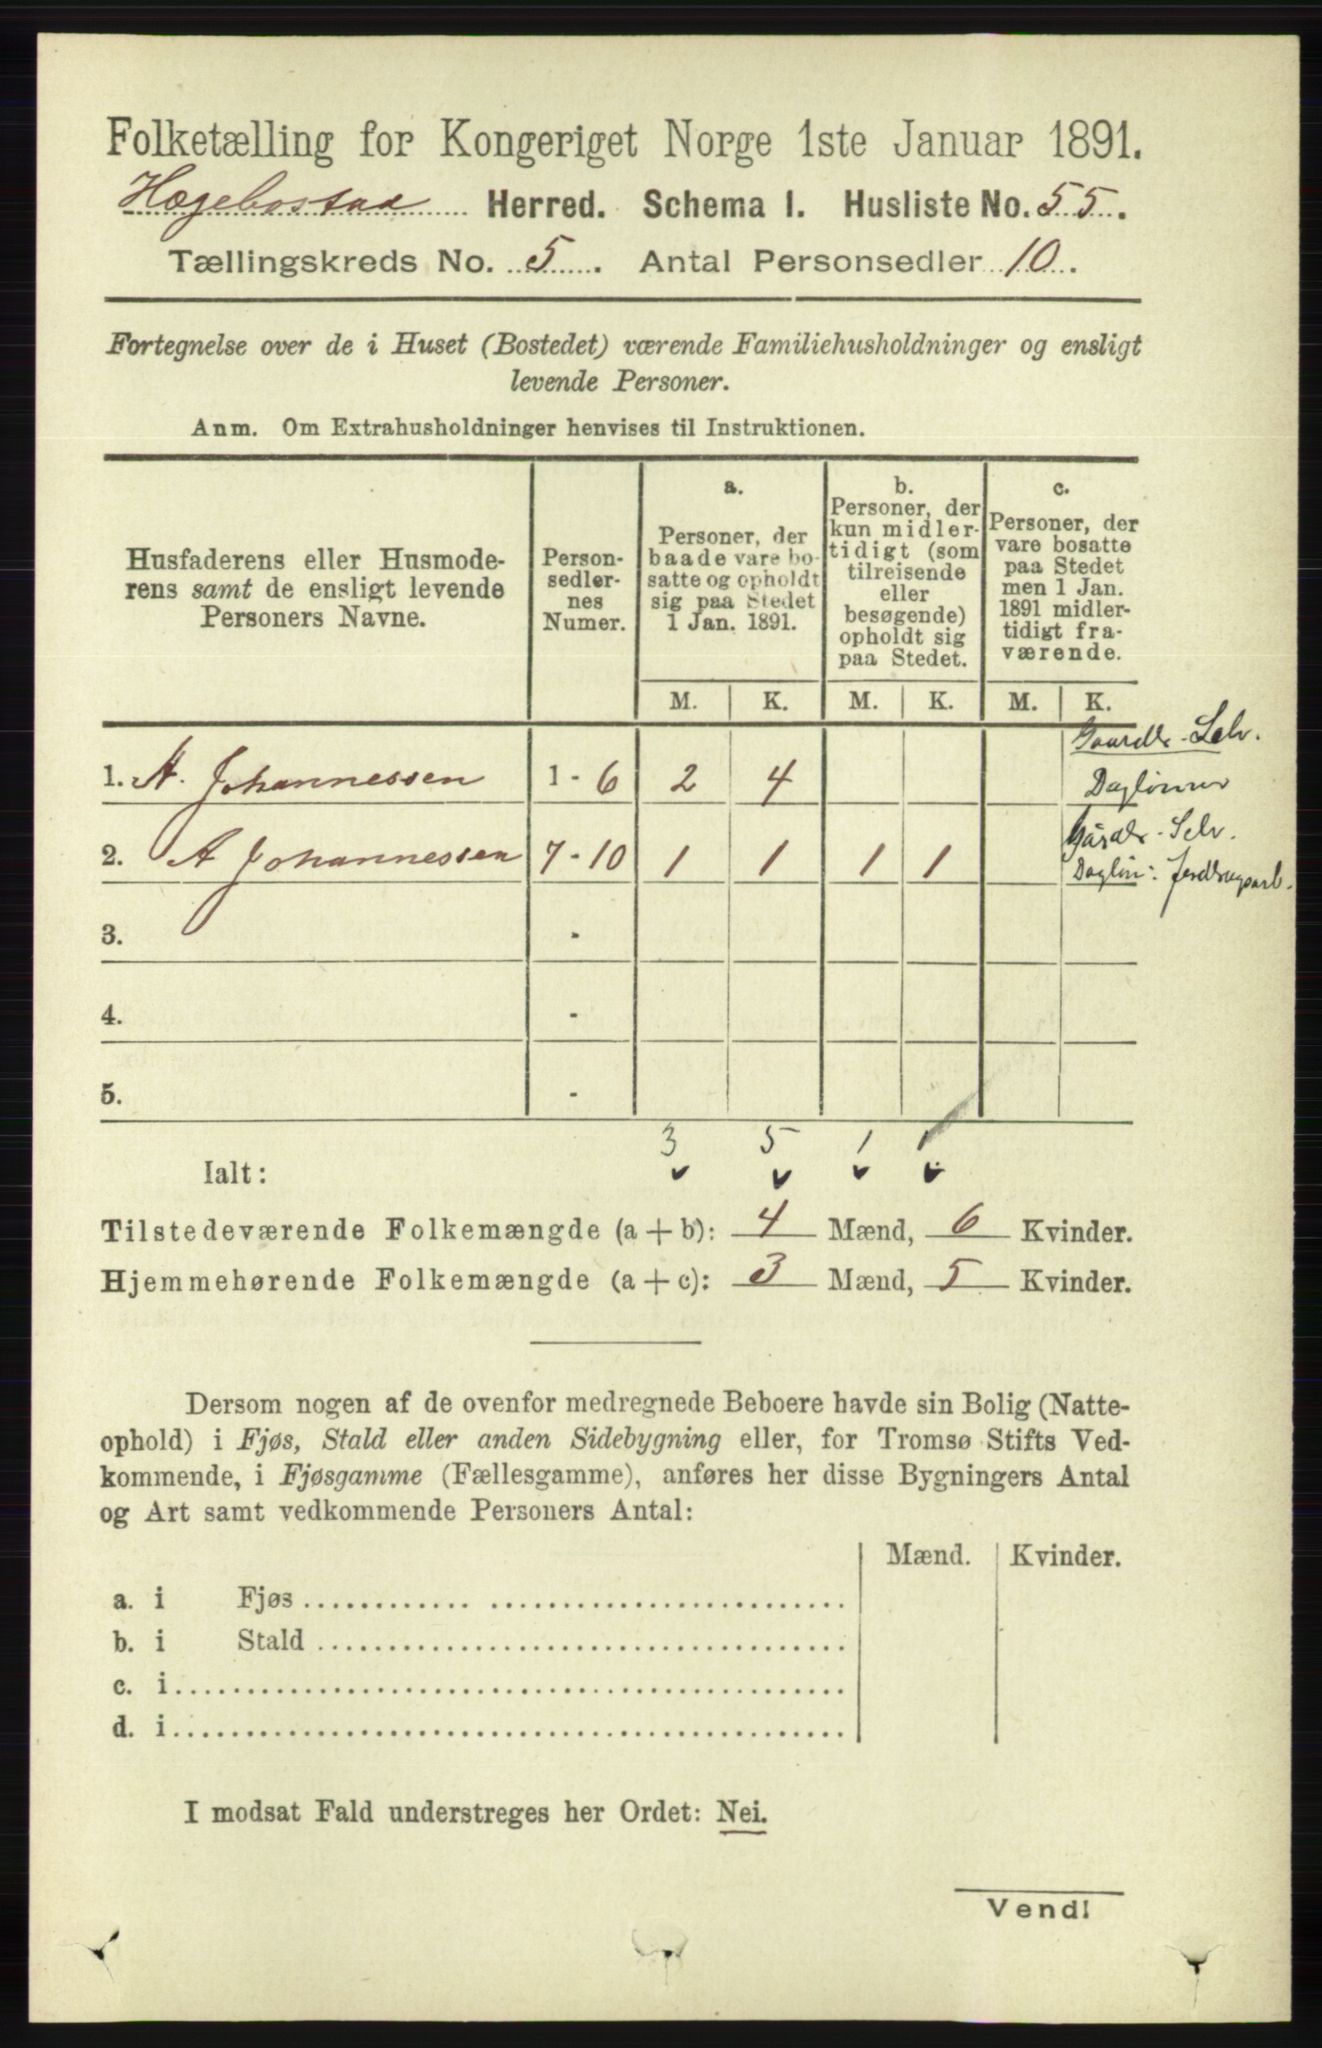 Folketælling for Kongeriget Norge 1ste Januar 1891.
Hægebostad Herred. Schema I. Husliste No. 55.
Tællingskreds No. 5. Antal Personsedler 10.
Fortegnelse over de i Huset (Bostedet) værende Familiehusholdninger og ensligt
levende Personer.
Anm. Om Extrahusholdninger henvises til Instruktionen.
Husfaderens eller Husmode-
rens samt de ensligt levende
Personers Navne.
Person-
sedler-
nes
Numer.
a.
Personer, der
baade vare bo-
satte og opholdt
sig paa Stedet
1 Jan. 1891.
b.
Personer, der
kun midler-
tidigt (som
tilreisende
eller
besøgende)
opholdt sig
paa Stedet.
c.
Personer, der
vare bosatte
paa Stedet
men 1 Jan.
1891 midler-
tidigt fra-
værende.
M. K. M. K. M. K.
Gaardbr - Selv.
1. A. Johannessen 1 - 6 2 4 Dagløнner
Gårdbr - Selv.
2. A Johannessen 7 - 10 1 1 1 1
Dagløn: Jordbrugsarb.
3. -
4. -
5. -
3 5 1 1
Ialt:
Tilstedeværende Folkemængde (a + b): 4 Mænd, 6 Kvinder.
Hjemmehørende Folkemængde (a + c): 3 Mænd, 5 Kvinder.
Dersom nogen af de ovenfor medregnede Beboere havde sin Bolig (Natte-
ophold) i Fjøs, Stald eller anden Sidebygning eller, for Tromsø Stifts Ved-
kommende, i Fjøsgamme (Fællesgamme), anføres her disse Bygningers Antal
og Art samt vedkommende Personers Antal:
Mænd. Kvinder.
a. i Fjøs
b. i Stald
c. i
d. i
I modsat Fald understreges her Ordet: Nei.
Vend!